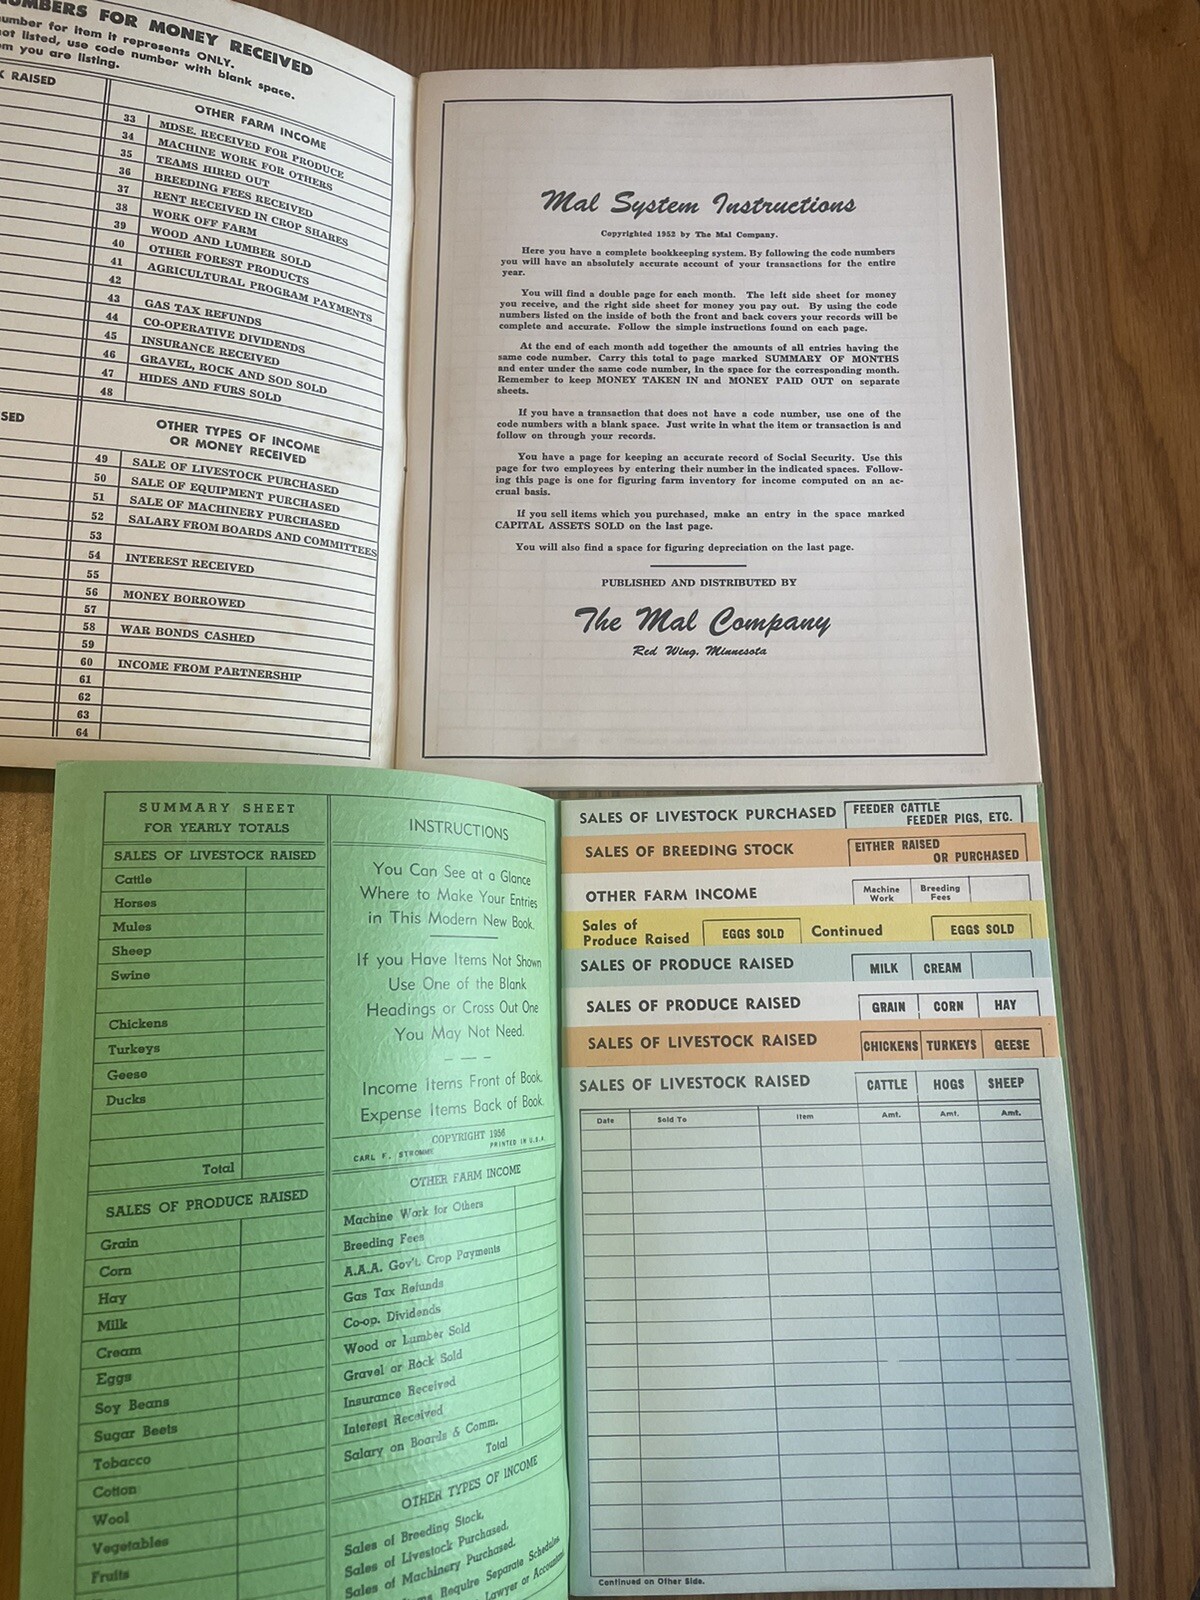 NUMBERS FOR MONEY RECEIVED
number for item it represents ONLY.
not listed, use code number with blank space.
you are listing.
RAISED
OTHER FARM INCOME
33 MDSE. RECEIVED FOR PRODUCE
34 MACHINE WORK FOR OTHERS
35 TEAMS HIRED OUT
36 BREEDING FEES RECEIVED
37 RENT RECEIVED IN CROP SHARES
38 WORK OFF FARM
39 WOOD AND LUMBER SOLD
40 OTHER FOREST PRODUCTS
41 AGRICULTURAL PROGRAM PAYMENTS
42
43 GAS TAX REFUNDS
44 CO-OPERATIVE DIVIDENDS
45 INSURANCE RECEIVED
46 GRAVEL, ROCK AND SOD SOLD
47 HIDES AND FURS SOLD
48
OTHER TYPES OF INCOME
OR MONEY RECEIVED
49 SALE OF LIVESTOCK PURCHASED
50 SALE OF EQUIPMENT PURCHASED
51 SALE OF MACHINERY PURCHASED
52 SALARY FROM BOARDS AND COMMITTEES
53
54 INTEREST RECEIVED
55
56 MONEY BORROWED
57
58 WAR BONDS CASHED
59
60 INCOME FROM PARTNERSHIP
61
62
63
64
Mal System Instructions
Copyrighted 1952 by The Mal Company.
Here you have a complete bookkeeping system. By following the code numbers
you will have an absolutely accurate account of your transactions for the entire
year.
You will find a double page for each month. The left side sheet for money
you receive, and the right side sheet for money you pay out. By using the code
numbers listed on the inside of both the front and back covers your records will be
complete and accurate. Follow the simple instructions found on each page.
At the end of each month add together the amounts of all entries having the
same code number. Carry this total to page marked SUMMARY OF MONTHS
and enter under the same code number, in the space for the corresponding month.
Remember to keep MONEY TAKEN IN and MONEY PAID OUT on separate
sheets.
If you have a transaction that does not have a code number, use one of the
code numbers with a blank space. Just write in what the item or transaction is and
follow on through your records.
You have a page for keeping an accurate record of Social Security. Use this
page for two employees by entering their number in the indicated spaces. Follow-
ing this page is one for figuring farm inventory for income computed on an ac-
crual basis.
If you sell items which you purchased, make an entry in the space marked
CAPITAL ASSETS SOLD on the last page.
You will also find a space for figuring depreciation on the last page.
PUBLISHED AND DISTRIBUTED BY
The Mal Company
Red Wing, Minnesota
SUMMARY SHEET
FOR YEARLY TOTALS
SALES OF LIVESTOCK RAISED
Cattle
Horses
Mules
Sheep
Swine
Chickens
Turkeys
Geese
Ducks
Total
SALES OF PRODUCE RAISED
Grain
Corn
Hay
Milk
Cream
Eggs
Soy Beans
Sugar Beets
Tobacco
Cotton
Wool
Vegetables
Fruits
INSTRUCTIONS
You Can See at a Glance
Where to Make Your Entries
in This Modern New Book.
If you Have Items Not Shown
Use One of the Blank
Headings or Cross Out One
You May Not Need.
Income Items Front of Book.
Expense Items Back of Book.
COPYRIGHT 1956
CARL F. PRINTED IN U.S.A.
OTHER FARM INCOME
Machine Work for Others
Breeding Fees
A.A.A. Gov't. Crop Payments
Gas Tax Refunds
Co-op. Dividends
Wood or Lumber Sold
Gravel or Rock Sold
Insurance Received
Interest Received
Salary on Boards & Comm.
Total
OTHER TYPES OF INCOME
Sales of Breeding Stock,
Sales of Livestock Purchased,
Sales of Machinery Purchased.
Require Separate Schedules
Lawyer or
SALES OF LIVESTOCK PURCHASED FEEDER CATTLE
FEEDER PIGS, ETC.
SALES OF BREEDING STOCK EITHER RAISED
OR PURCHASED
OTHER FARM INCOME Machine Work Breeding Fees
Sales of
Produce Raised EGGS SOLD Continued EGGS SOLD
SALES OF PRODUCE RAISED MILK CREAM
SALES OF PRODUCE RAISED GRAIN CORN HAY
SALES OF LIVESTOCK RAISED CHICKENS TURKEYS GEESE
SALES OF LIVESTOCK RAISED CATTLE HOGS SHEEP
Date Sold To Item Amt. Amt. Amt.
Continued on Other Side.